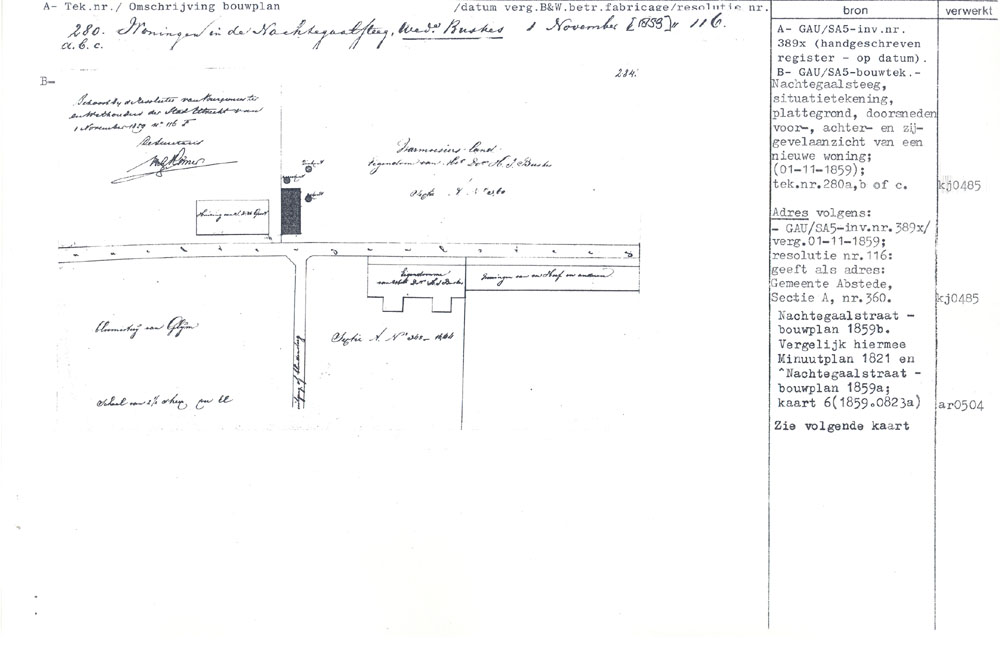 A- Tek.nr./ Omschrijving bouwplan /datum verg.B&W.betr.fabricage/resolutie nr.
280. Woningen in de Nachtegaalsteeg, Wede. Buskes 1 November [1859] n° 116.
a. b. c.
B-
284.
Behoort bij de Resolutie van Burgemeester
en Wethouders der Stad Utrecht van
1 November 1859 n° 116 F
De Secretaris
Warmoesiers-land
Eigendom van
Sectie A. N° 360
Woning
Eigendomme
Woningen van en anderen
Bloemisterij van
Sectie A. N°
Schaal van
bron
verwerkt
A- GAU/SA5-inv.nr.
389x (handgeschreven
register - op datum).
B- GAU/SA5-bouwtek.-
Nachtegaalsteeg,
situatietekening,
plattegrond, doorsneden
voor-, achter- en zij-
gevelaanzicht van een
nieuwe woning;
(01-11-1859);
tek.nr.280a,b of c. kj0485
Adres volgens:
- GAU/SA5-inv.nr.389x/
verg.01-11-1859;
resolutie nr.116:
geeft als adres:
Gemeente Abstede,
Sectie A, nr.360. kj0485
Nachtegaalstraat -
bouwplan 1859b.
Vergelijk hiermee
Minuutplan 1821 en
^Nachtegaalstraat -
bouwplan 1859a;
kaart 6(1859.0823a) ar0504
Zie volgende kaart